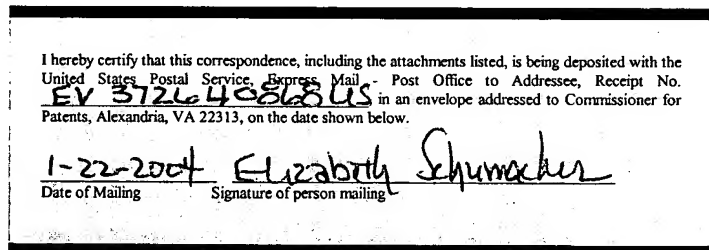 I hereby certify that this correspondence, including the attachments listed, is being deposited with the
United States Postal Service, Express Mail - Post Office to Addressee, Receipt No.
EV 372640868US in an envelope addressed to Commissioner for
Patents, Alexandria, VA 22313, on the date shown below.
1-22-2004 Elizabeth Schumacher
Date of Mailing Signature of person mailing